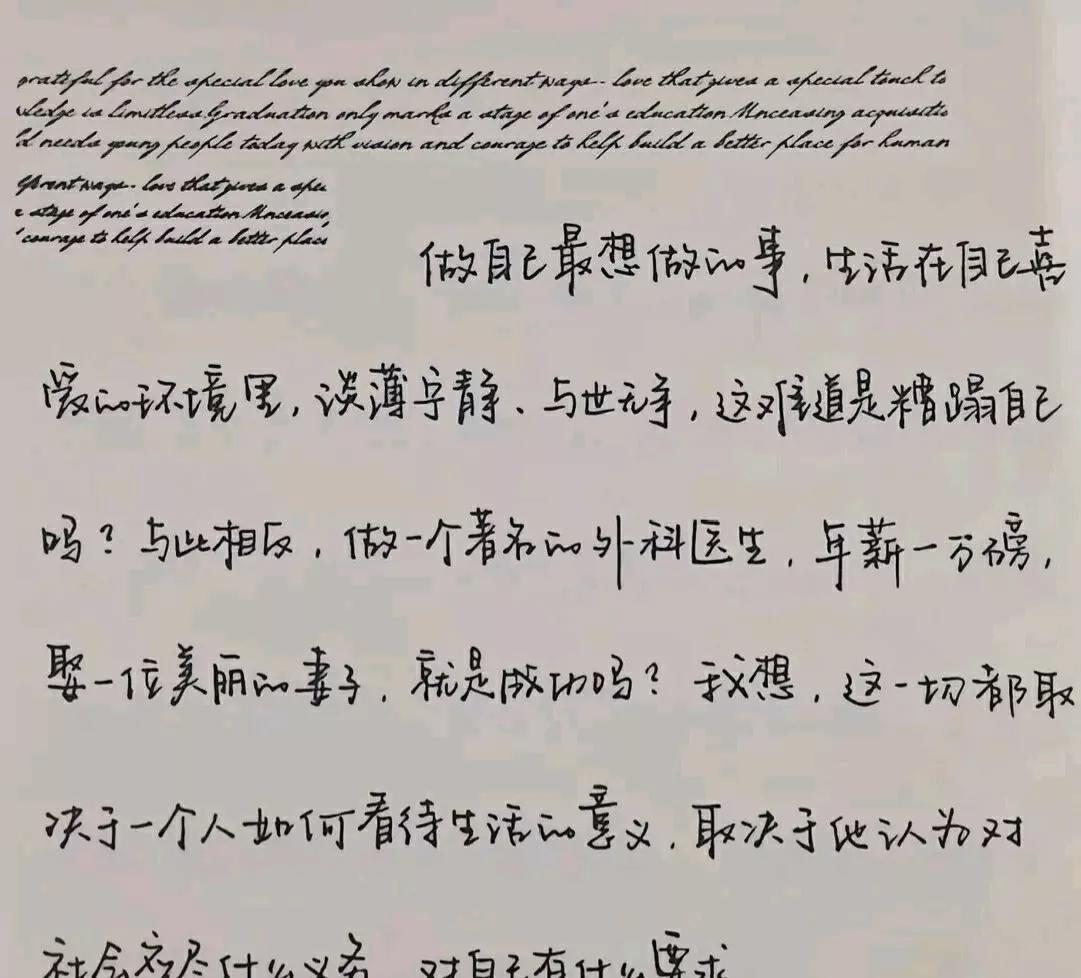 grateful for the special love you show in different ways-- love that gives a special touch to
wledge is limitless.Graduation only marks a stage of one's education.Unceasing acquisitio
ld needs young people today with vision and courage to help build a better place for human
fferent ways-- love that gives a spec
e stage of one's education.Unceasin
' courage to help build a better place
做自己最想做的事，生活在自己喜
爱的环境里，淡薄宁静、与世无争，这难道是糟蹋自己
吗？与此相反，做一个著名的外科医生，年薪一万磅，
娶一位美丽的妻子，就是成功吗？我想，这一切都取
决于一个人如何看待生活的意义，取决于他认为对
社会应尽什么义务，对自己有什么要求